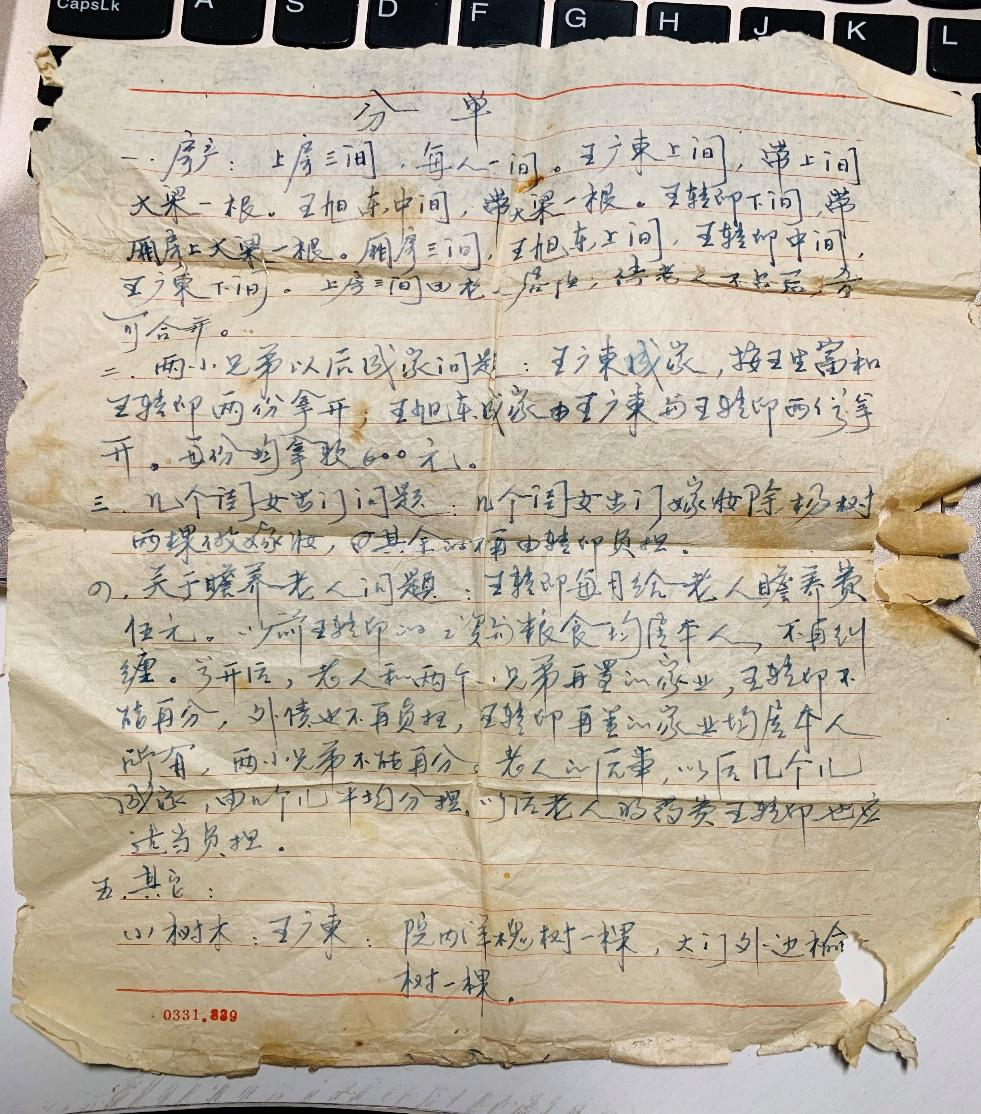 CapsLk A S D F G H J K L
分 单
一. 房产: 上房三间, 每人一间。王广东上间, 带上间
大梁一根。王旭东中间, 带大梁一根。王转印下间, 带
厢房上大梁一根。厢房三间, 王旭东上间, 王转印中间,
王广东下间。上房三间由老人居住, 待老人不在后, 方
可合开。
二. 两小兄弟以后成家问题: 王广东成家, 按王生富和
王转印两份拿开; 王旭东成家由王广东与王转印两份拿
开。每份均拿款600元。
三. 几个闺女出门问题: 几个闺女出门嫁妆除杨树
两棵做嫁妆, 其余的不再由转印负担.
四. 关于瞻养老人问题: 王转印每月给老人瞻养费
伍元。以前王转印的工资和粮食均属本人, 不再纠
缠。分开后, 老人和两个小兄弟再置的家业, 王转印不
能再分, 外债也不再负担, 王转印再置的家业均属个人
所有, 两小兄弟不能再分。老人的后事, 以后几个儿
成家, 由几个儿平均分担. 以后老人的药费王转印也应
适当负担.
五. 其它:
(1) 树木: 王广东: 院内洋槐树一棵, 大门外边榆
树一棵.
0331.839